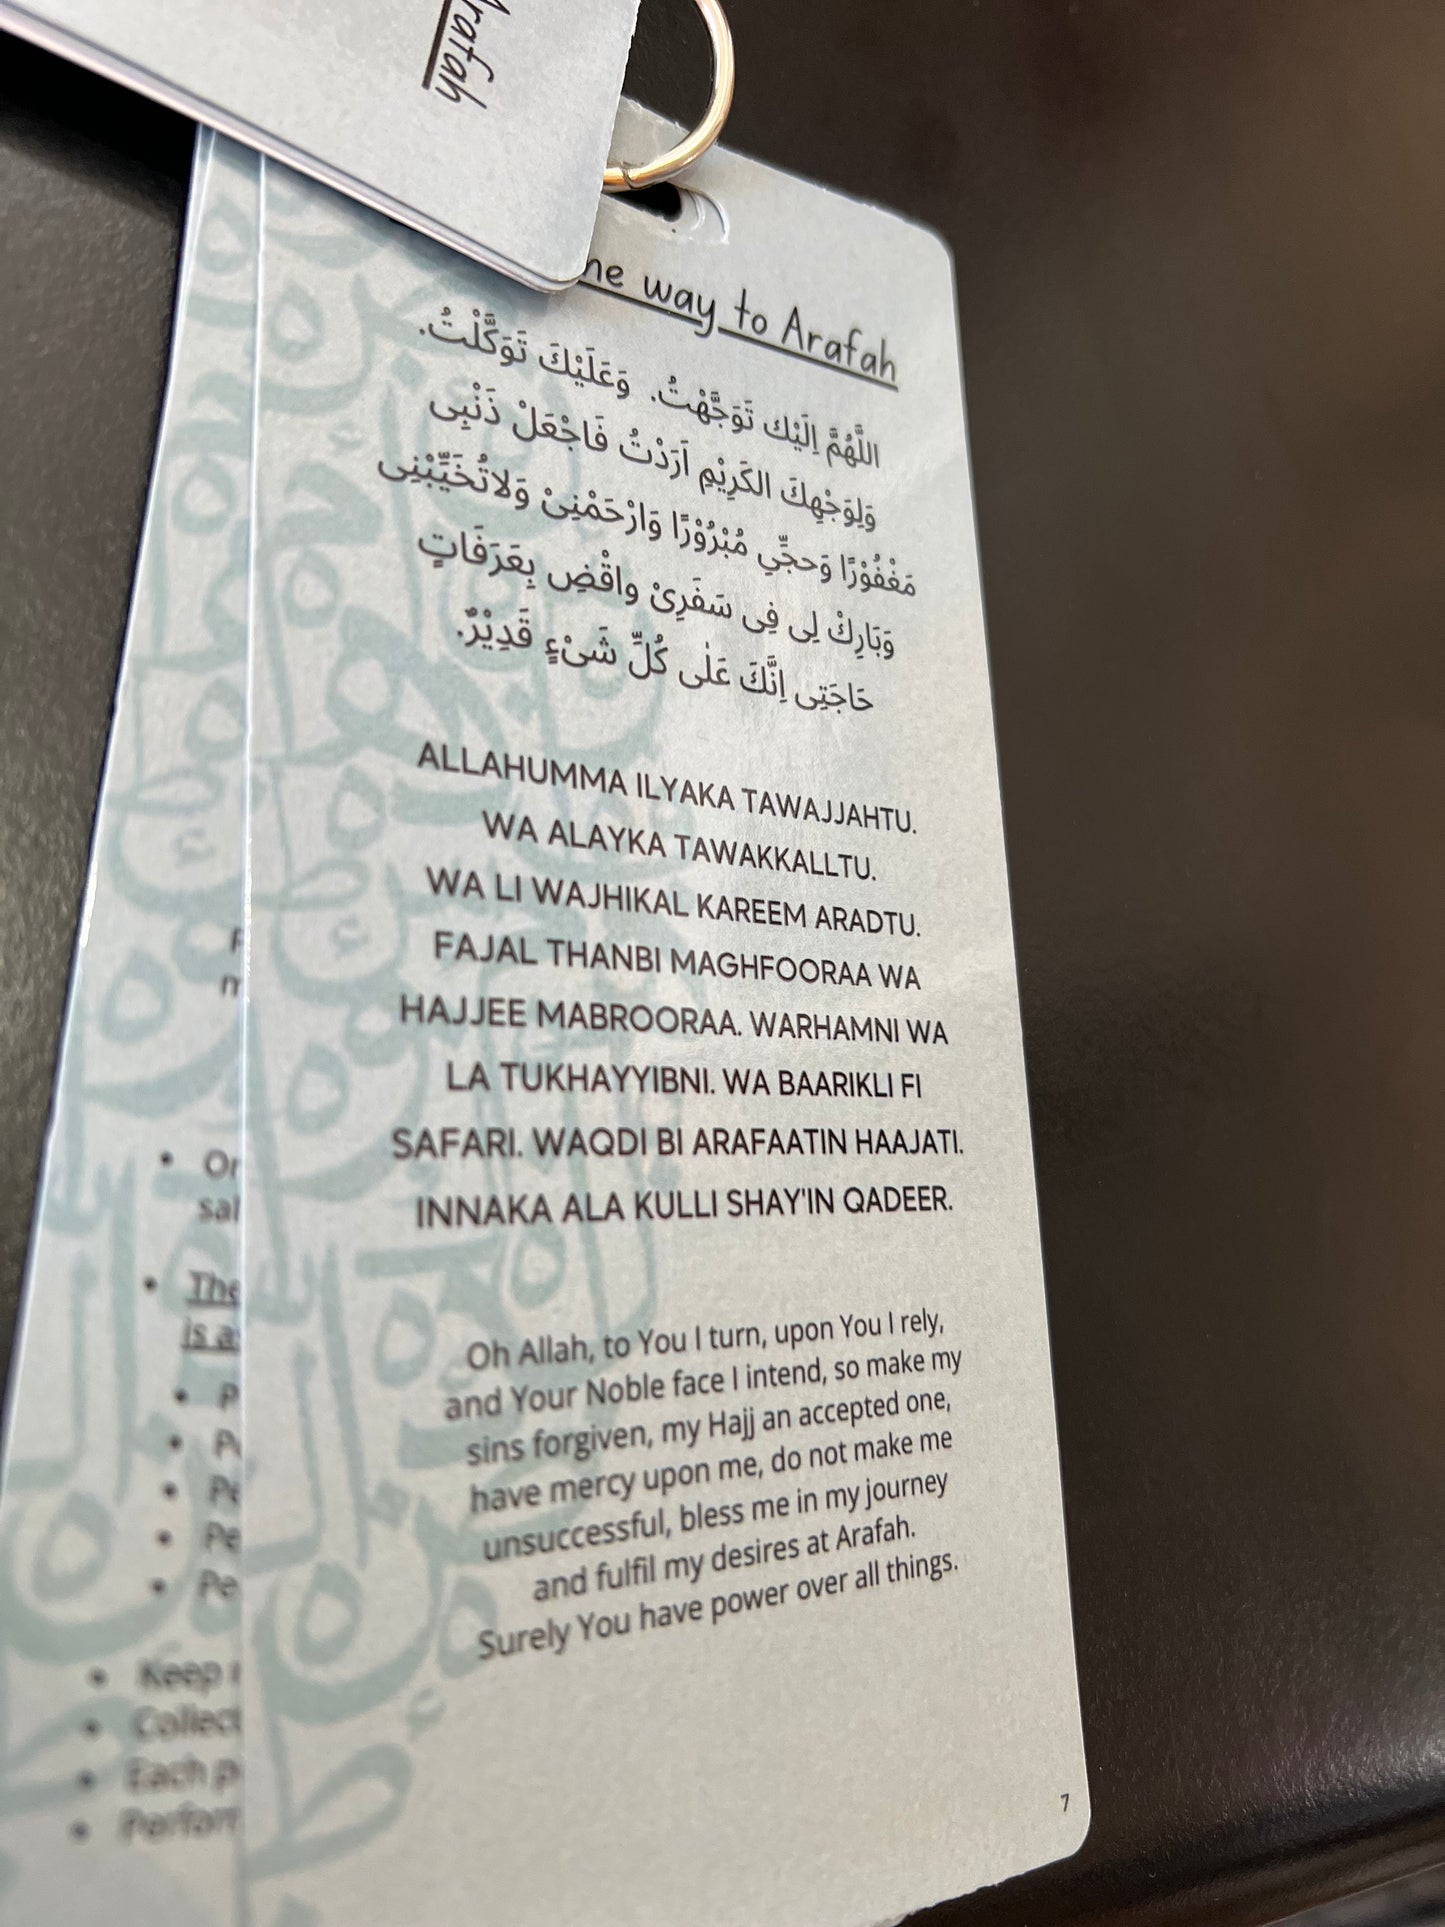 Arafah
he way to Arafah
اللَّهُمَّ اِلَيْكَ تَوَجَّهْتُ. وَعَلَيْكَ تَوَكَّلْتُ.
وَلِوَجْهِكَ الكَرِيْمِ اَرَدْتُ فَاجْعَلْ ذَنْبِى
مَغْفُوْرًا وَحجِّي مُبْرُوْرًا وَارْحَمْنِىْ وَلاتُخَيِّبْنِى
وَبَارِكْ لِى فِى سَفَرِىْ واقْضِ بِعَرَفَاتٍ
حَاجَتِى اِنَّكَ عَلٰى كُلِّ شَىْءٍ قَدِيْرٌ.
ALLAHUMMA ILYAKA TAWAJJAHTU.
WA ALAYKA TAWAKKALLTU.
WA LI WAJHIKAL KAREEM ARADTU.
FAJAL THANBI MAGHFOORAA WA
HAJJEE MABROORAA. WARHAMNI WA
LA TUKHAYYIBNI. WA BAARIKLI FI
SAFARI. WAQDI BI ARAFAATIN HAAJATI.
INNAKA ALA KULLI SHAY'IN QADEER.
Oh Allah, to You I turn, upon You I rely,
and Your Noble face I intend, so make my
sins forgiven, my Hajj an accepted one,
have mercy upon me, do not make me
unsuccessful, bless me in my journey
and fulfil my desires at Arafah.
Surely You have power over all things.
7
The
Keep
Each